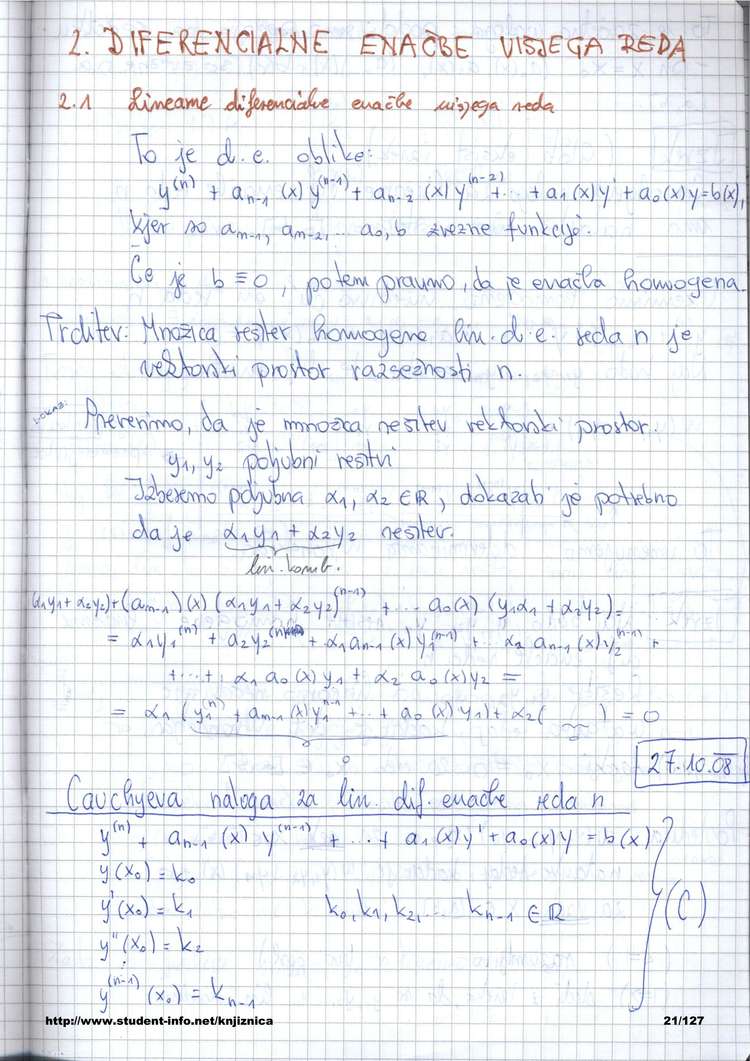 2. DIFERENCIALNE ENAČBE VIŠJEGA REDA
2.1 Linearne diferencialne enačbe višjega reda
To je d.e. oblike:
y⁽ⁿ⁾ + aₙ₋₁ (x) y⁽ⁿ⁻¹⁾ + aₙ₋₂ (x) y⁽ⁿ⁻²⁾ + ... + a₁(x)y' + a₀(x)y = b(x),
kjer so aₙ₋₁, aₙ₋₂, ... a₀, b zvezne funkcije.
Če je b ≡ 0, potem pravimo, da je enačba homogena.
Trditev: Množica rešitev homogene lin. d.e. reda n je
vektorski prostor razsežnosti n.
DOKAZ: Preverimo, da je množica rešitev vektorski prostor.
y₁, y₂ poljubni rešitvi
Izberemo poljubna α₁, α₂ ∈ ℝ, dokazati je potrebno
da je α₁y₁ + α₂y₂ rešitev.
lin. komb.
(α₁y₁ + α₂y₂) + (aₙ₋₁)(x) (α₁y₁ + α₂y₂)⁽ⁿ⁻¹⁾ + ... a₀(x) (y₁α₁ + α₂y₂) =
= α₁y₁⁽ⁿ⁾ + a₂y₂⁽ⁿ⁾ + α₁aₙ₋₁(x) y₁⁽ⁿ⁻¹⁾ + .. α₂ aₙ₋₁(x) y₂⁽ⁿ⁻¹⁾ +
+ ... + α₁ a₀(x) y₁ + α₂ a₀(x) y₂ =
= α₁ (y₁ⁿ⁾ + aₙ₋₁(x) y₁ⁿ⁻¹ + ... + a₀(x) y₁) + α₂ ( ) = 0
0 0
27.10.08
Cauchyeva naloga za lin. dif. enačbe reda n
y⁽ⁿ⁾ + aₙ₋₁ (x) y⁽ⁿ⁻¹⁾ + ... + a₁(x)y' + a₀(x)y = b(x)
y(x₀) = k₀
y'(x₀) = k₁ k₀, k₁, k₂, ... kₙ₋₁ ∈ ℝ (C)
y''(x₀) = k₂
⋮
y⁽ⁿ⁻¹⁾(x₀) = kₙ₋₁
http://www.student-info.net/knjiznica 21/127